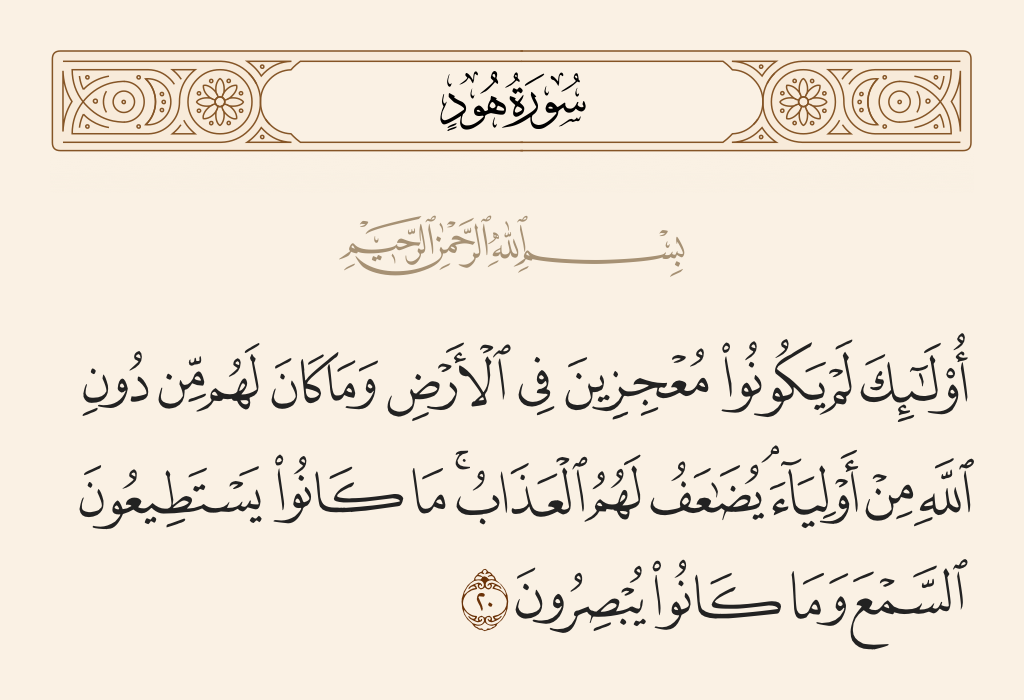 سُورَةُ هُودٍ
بِسْمِ ٱللَّهِ ٱلرَّحْمَٰنِ ٱلرَّحِيمِ
أُو۟لَٰٓئِكَ لَمْ يَكُونُوا۟ مُعْجِزِينَ فِى ٱلْأَرْضِ وَمَا كَانَ لَهُم مِّن دُونِ
ٱللَّهِ مِنْ أَوْلِيَآءَ ۘ يُضَٰعَفُ لَهُمُ ٱلْعَذَابُ ۚ مَا كَانُوا۟ يَسْتَطِيعُونَ
ٱلسَّمْعَ وَمَا كَانُوا۟ يُبْصِرُونَ ٢٠